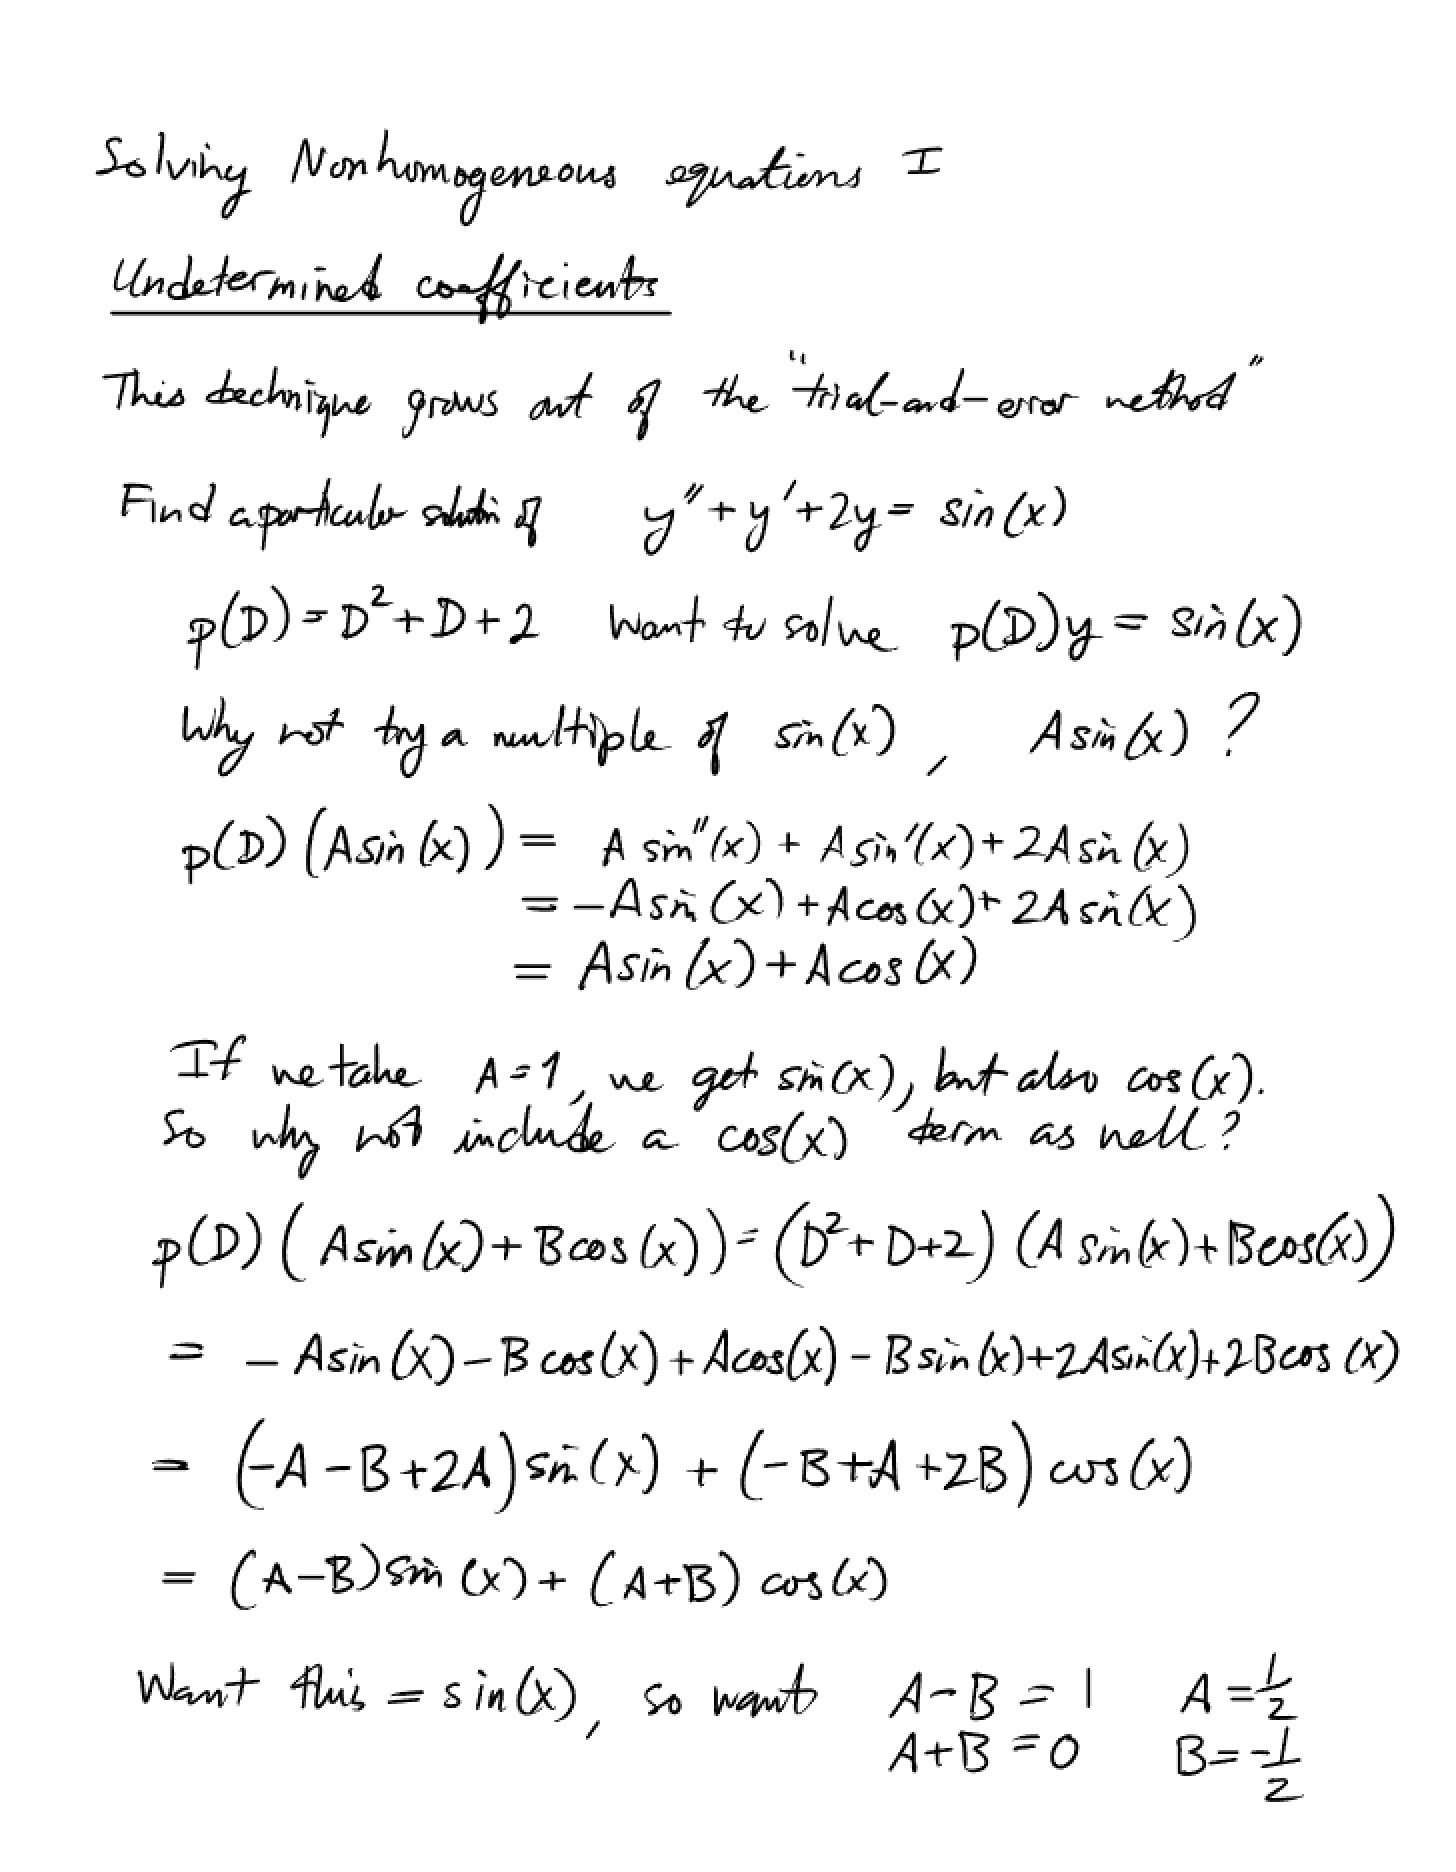 Solving Nonhomogeneous equations I
Undetermined coefficients
This technique grows out of the "trial-and-error method"
Find a particular solution of y'' + y' + 2y = sin(x)
p(D) = D² + D + 2 Want to solve p(D)y = sin(x)
Why not try a multiple of sin(x), A sin(x) ?
p(D) (A sin(x)) = A sin''(x) + A sin'(x) + 2A sin(x)
= -A sin(x) + A cos(x) + 2A sin(x)
= A sin(x) + A cos(x)
If we take A = 1, we get sin(x), but also cos(x).
So why not include a cos(x) term as well?
p(D) (A sin(x) + B cos(x)) = (D² + D + 2) (A sin(x) + B cos(x))
= - A sin(x) - B cos(x) + A cos(x) - B sin(x) + 2A sin(x) + 2B cos(x)
= (-A - B + 2A) sin(x) + (-B + A + 2B) cos(x)
= (A - B) sin(x) + (A + B) cos(x)
Want this = sin(x), so want A - B = 1 A = 1/2
A + B = 0 B = -1/2